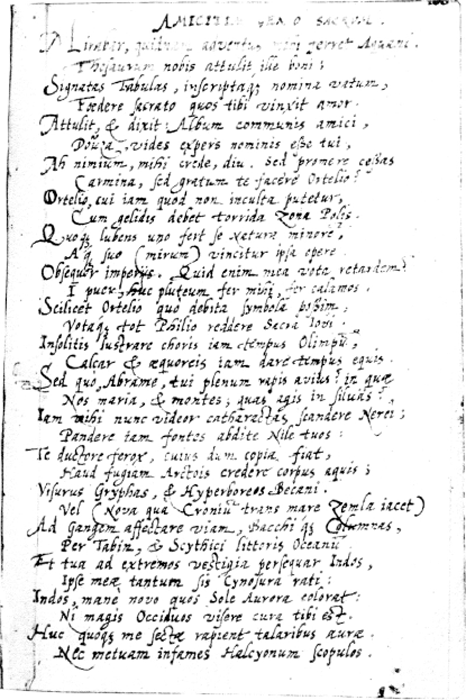 AMICITIAE SACRUM.
adventus mihi
Thesaurum nobis attulit ille boni;
Signatas Tabulas, inscriptaq; nomina vatum,
Foedere sacrato quos tibi vinxit amor.
Attulit, & dixit: Album communis amici,
Douza, vides expers nominis esse tui,
Ah nimium, mihi crede, diu. Sed promere cessas
Carmina, sed gratum te facere Ortelio?
Ortelio, cui iam quod non inculta putetur,
Cum gelidis debet torrida zona Polis.
Quoq; lubens uno fert se Natura minore,
Aq; suo (mirum) vincitur ipsa opere.
Obsequor imperijs. Quid enim mea vota retardem?
I puer, huc pluteum fer mihi, fer calamos.
Scilicet Ortelio quo debita symbola possim,
Votaq; tot Philio reddere sacra Iovi.
Insolitis lustrare choris iam tempus Olimpū,
Calcar & aequoreis iam dare tempus equis.
Sed quo, Abrame, tui plenum rapis avius? in quae
Nos maria, & montes; quas agis in silvas?
Iam mihi nunc videor catharactas scandere Nerei;
Pandere iam fontes abdite Nile tuos:
Te ductore ferox, cuius dum copia fiat,
Haud fugiam Arctois credere corpus aquis;
Visurus Gryphas, & Hyperboreos Becani.
Vel (Nova qua Croniū trans mare Zemla iacet)
Ad Gangem affectare viam, Bacchi q; Columnas,
Per Tabin, & Scythici littoris Oceanū.
Et tua ad extremos vestigia persequar Indos,
Ipse meae tantum sis Cynosura rati:
Indos, mane novo quos Sole Aurora colorat:
Ni magis Occiduos visere cura tibi est.
Huc quoq; me sectae rapient talaribus aurae.
Nec metuam infames Halcyonum scopulos.